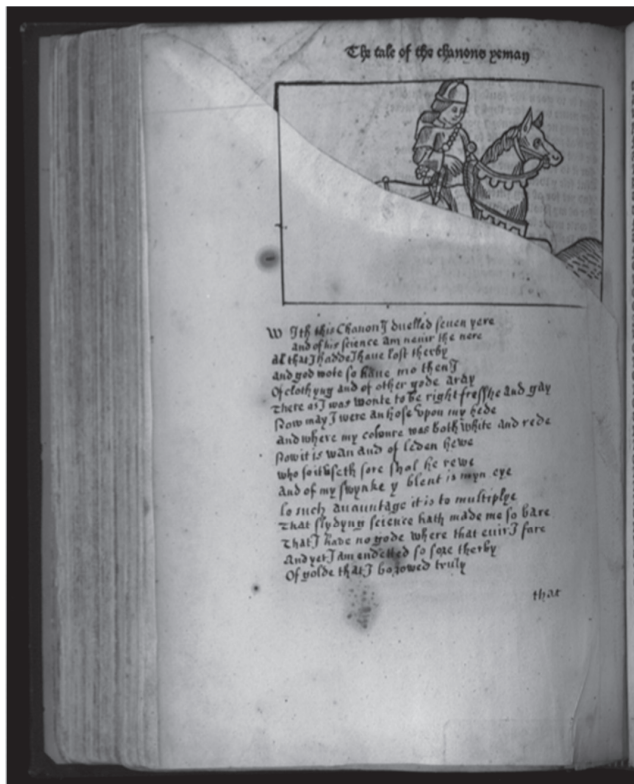 The tale of the chanons yeman
W Ith this Chanon I duelled seuen yere
and of his science am neuir the nere
Al that I hadde I haue lost therby
and god wote so haue mo then I
Of clothyng and of other gode aray
There as I was wonte to be right fresshe and gay
Now may I were an hose vpon my hede
and where my coloure was both white and rede
Now it is wan and of leden hewe
who so it vseth sore shal he rewe
And of my swynke y blent is myn eye
lo such auauntage it is to multiplye
That slydyng science hath made me so bare
That I haue no gode where that euir I fare
And yet I am endetted so sore therby
Of golde that I borowed truly
that